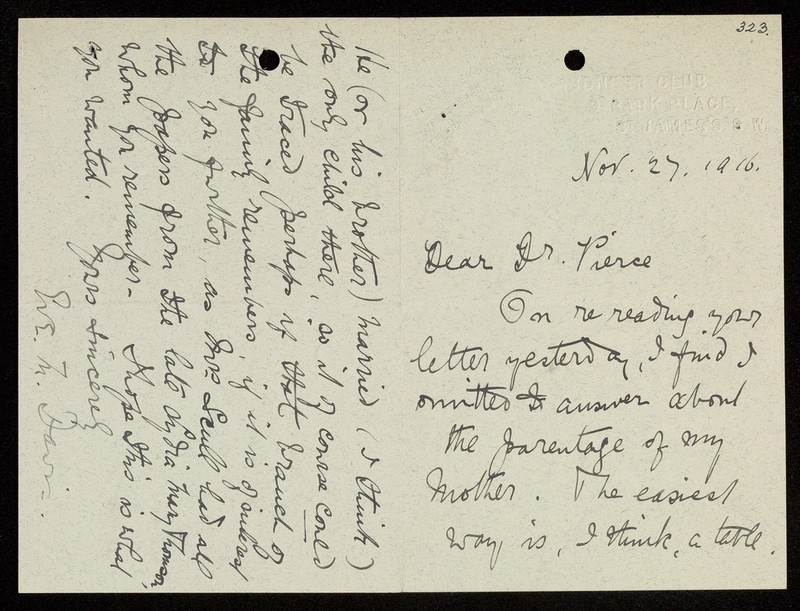 323.
PIONEER CLUB
9 PARK PLACE,
ST JAMES'S S.W.
Nov. 27. 1916.
Dear Dr. Pierce
On re reading your
letter yesterday, I find I
omitted to answer about
the parentage of my
Mother. The easiest
way is, I think, a table.
He (or his brother) married (I think)
the only child there, so it of course could
be traced perhaps if that branch of
the family remembers, if it is of interest
to you further, as Mrs had all
the papers from the late Lydia Mary Thomson,
whom you remember. I hope this is what
you wanted. Yrs sincerely